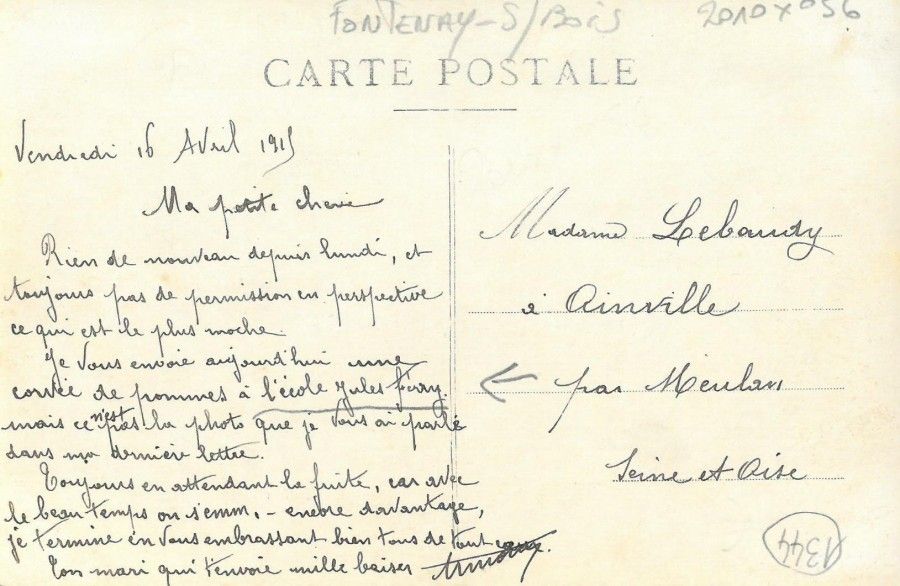 FONTENAY-S/BOIS 2010 x 056
CARTE POSTALE
Vendredi 16 Avril 1915
Ma petite cherie
Rien de nouveau depuis lundi, et
toujours pas de permission en perspective
ce qui est le plus moche.
Je vous envoie aujourd'hui une
corvée de pommes à l'école Jules Ferry.
mais ce n'est pas la photo que je vous ai parlé
dans ma dernière lettre.
Toujours en attendant la suite, car avec
le beau temps on s'emm. - encore davantage,
je termine en vous embrassant bien tous de tout cœur.
Ton mari qui t'envoie mille baisers
Madame Lebaudy
à Ainville
par Meulan
Seine et Oise
1344